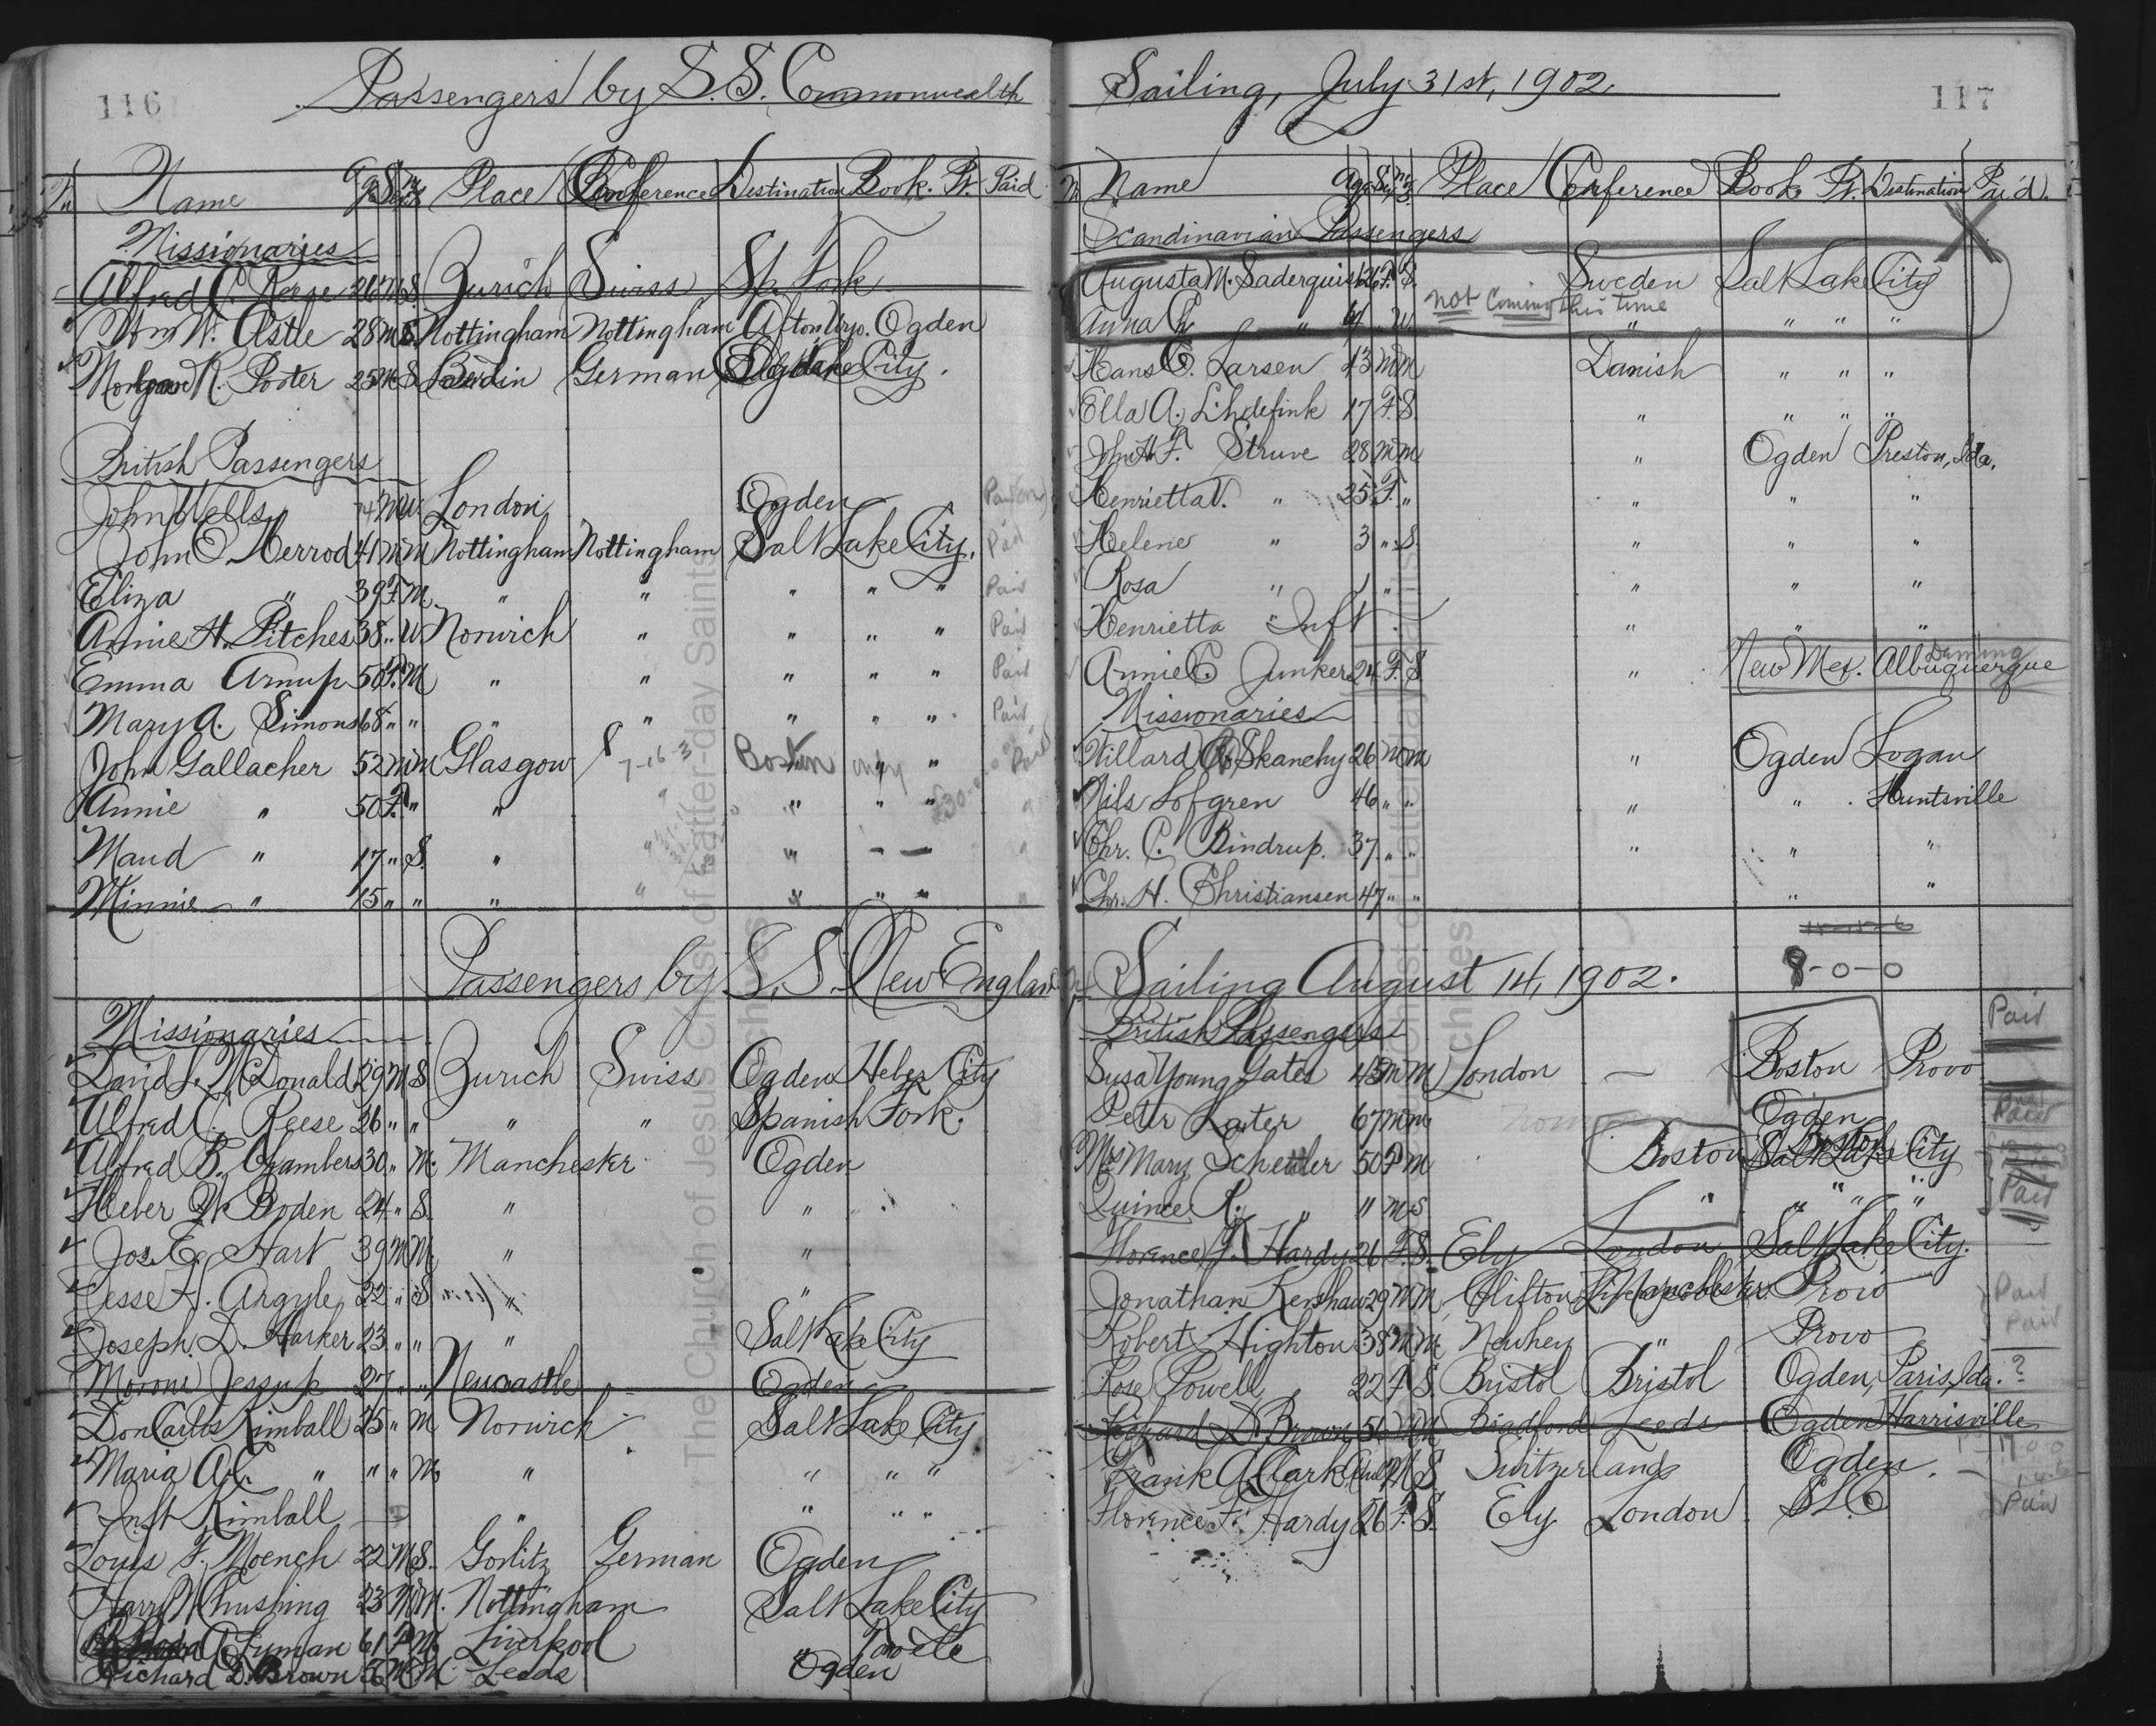 116
Passengers by S.S. Commonwealth
Name Age Sex Place Conference Destination Book. Pt. Paid
Missionaries
Alfred C. Reese 26 M S Zurich Swiss Sp. Fork
Wm W. Astle 28 M S. Nottingham Nottingham Afton Wyo. Ogden
Morgan R. Porter 25 M S Berlin German City.
British Passengers
John Wells 74 M W London Ogden Paid
John E. Herrod 41 M M Nottingham Nottingham Salt Lake City. Paid
Eliza " 39 F. M. " " " " " Paid
Annie H. Pitches 38 " W Norwich " " " " Paid
Emma Arnup 50 F. M " " " " " Paid
Mary A. Simons 68 " " " " " " " Paid
John Gallacher 52 M M Glasgow 7-16-3 Boston only " Paid
Annie " 50 F. " " " " " "
Maud " 17 " S. " " " — — "
Minnie " 15 " " " " " " " "
Passengers by S.S. New England
Missionaries
David L. McDonald 29 M S. Zurich Swiss Ogden Heber City
Alfred C. Reese 26 " " " " Spanish Fork.
Alfred B. Chambers 30 " M. Manchester Ogden
Heber K. Boden 24 " S. " "
Jos. E. Hart 39 M M " "
Jesse H. Argyle 22 " S " "
Joseph D. Harker 23 " " " Salt Lake City
Moroni Jessup 27 " " Newcastle Ogden
Don Carlos Kimball 25 " M Norwich Salt Lake City
Maria A.C. " " " M " " " "
Inft Kimball " " " "
Louis F. Moench 22 M S. Gorlitz German Ogden
Harry W. Chushing 23 M M. Nottingham Salt Lake City
Lyman 61 F M. Liverpool " Tooele
Richard D. Brown M M. Leeds Ogden
Sailing, July 31st, 1902.
117
Name Age Sex Place Conference Book. Pt. Destination Paid.
Scandinavian Passengers
Augusta M. Saderquist 26 F. S. Sweden Salt Lake City
not Coming this time
Anna C. " " W " " " "
Hans C. Larsen 43 M M Danish " " "
Ella A. 17 F. S. " " " "
John H. F. Struve 28 M M " Ogden Preston, Ida.
Henrietta V. " 25 F. " " " "
Helene " 3 " S. " " "
Rosa " 1 " " " "
Henrietta " Inft. " " "
Annie C. Junker 24 F. S " New Mex. Albuquerque
Deming
Missionaries
Willard Skanchy 26 M M " Ogden Logan
Nils Lofgren 46 " " " " Huntsville
Chr. C. Bindrup. 37 " " " " "
Chr. H. Christiansen 47 " " " "
8-0-0
Sailing August 14, 1902.
British Passengers
Susa Young Gates M London — Boston Provo Paid
Peter Later 67 M M Ogden Paid
Mrs Mary Schettler 50 F M Boston Boston Salt Lake City
Quince R. " " M S " " " " Paid
Florence F. Hardy 26 F. S. Ely London Salt Lake City.
Jonathan Kershaw 29 M M Clifton Manchester Provo Paid
Robert Highton 38 M M. Newhey " Provo Paid
Rose Powell 22 F S. Bristol Bristol Ogden, Paris, Ida. ?
Richard D. Brown 56 M M Bradford Leeds Ogden Harrisville
Frank A. Clark M S. Switzerland Ogden.
Florence F. Hardy 26 F. S. Ely London S.L.C. Paid
The Church of Jesus Christ of Latter-day Saints
Archives